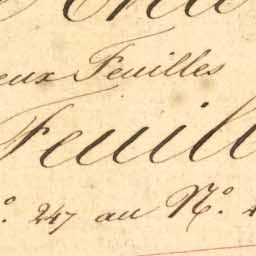 eux Feuilles
Feuill
º. 247 au Nº.